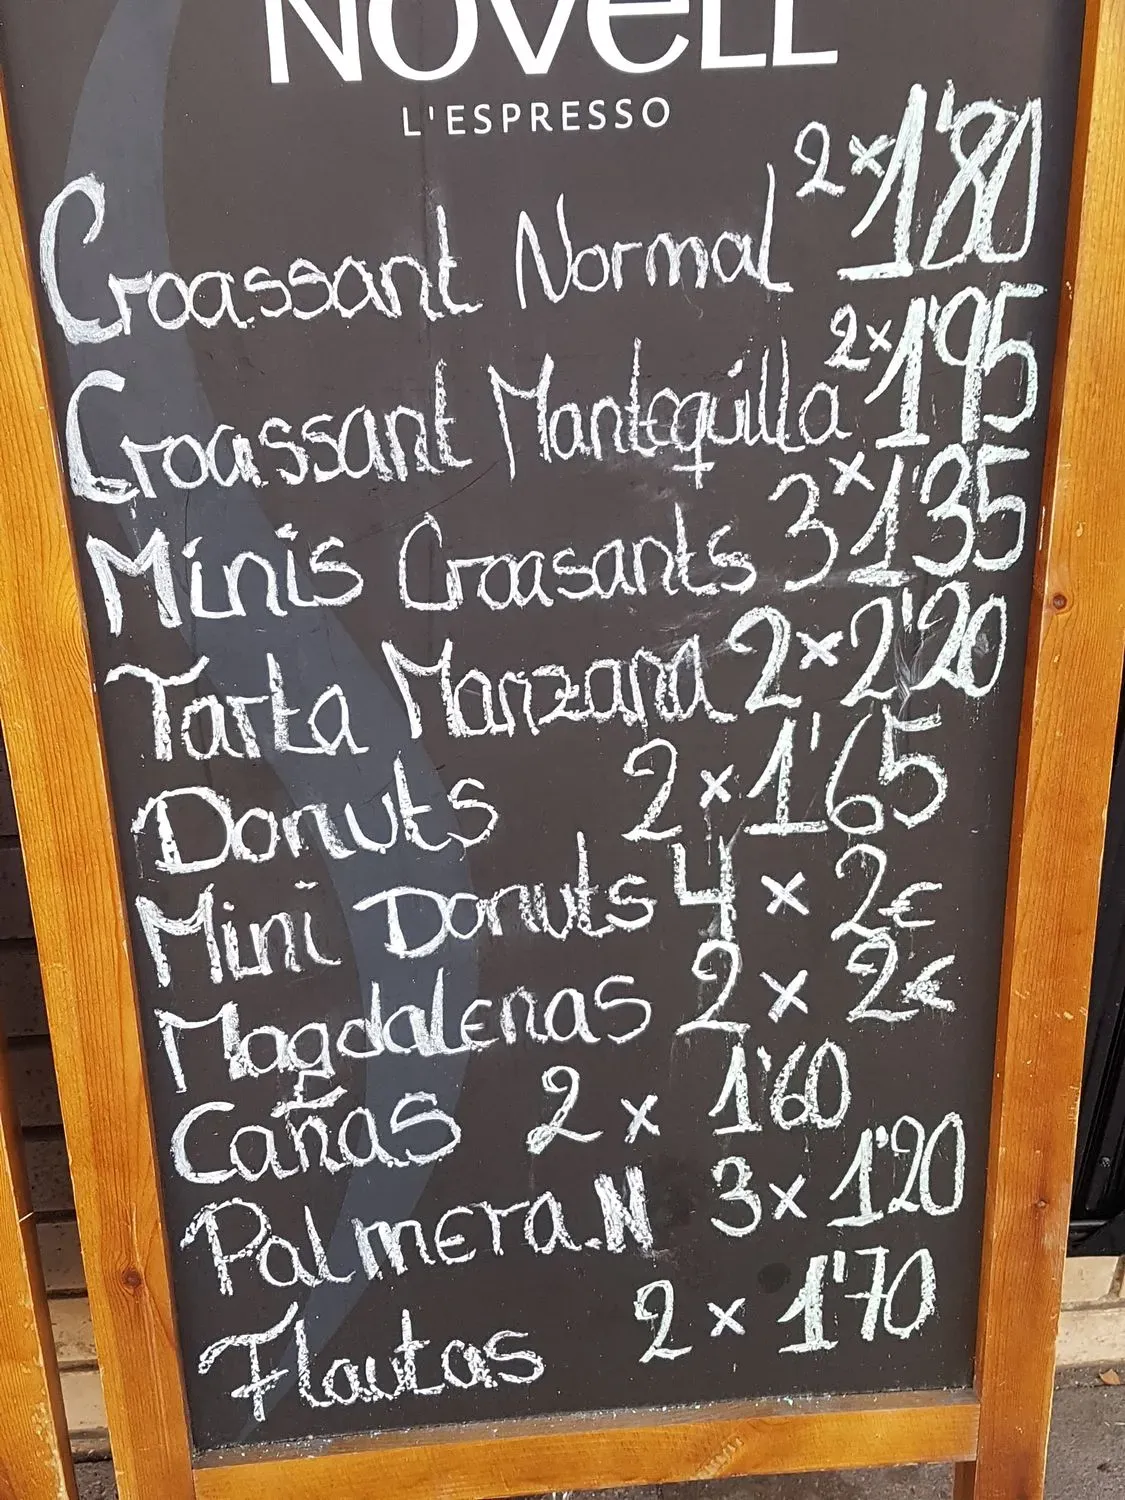 NOVELL
L'ESPRESSO
Croassant Normal 2x1'80
Croassant Mantequilla 2x1'95
Minis Croasants 3x1'35
Tarta Manzana 2x2'20
Donuts 2x1'65
Mini Donuts 4x2€
Magdalenas 2x2€
Cañas 2x1'60
Palmera.N 3x1'20
Flautas 2x1'70